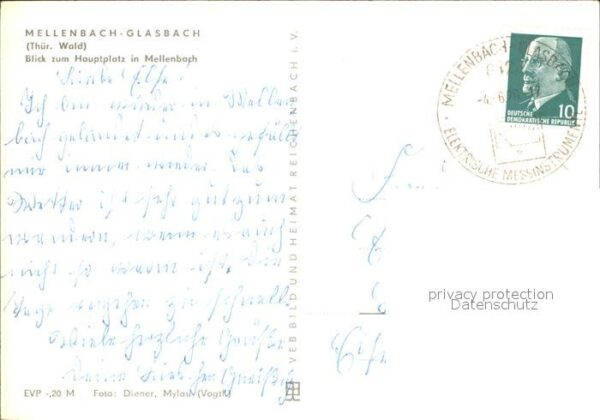 MELLENBACH-GLASBACH
(Thür. Wald)
Blick zum Hauptplatz in Mellenbach
Liebe Else!
Ich bin wieder in Mellen-
bach gelandet und es gefällt
mir immer wieder. Das
Wetter ist sehr gut zum
wandern, wenn es auch
nicht so warm ist. Die
Tage vergehen zu schnell.
Viele herzliche Grüße
Deine
EVP -,20 M Foto: Diener, Mylau (Vogtl.)
VEB BILD UND HEIMAT REICHENBACH I. V.
MELLENBACH-GLASBACH
ELEKTRISCHE MESSINSTRUMENTE
10
DEUTSCHE
DEMOKRATISCHE REPUBLIK
privacy protection
Datenschutz